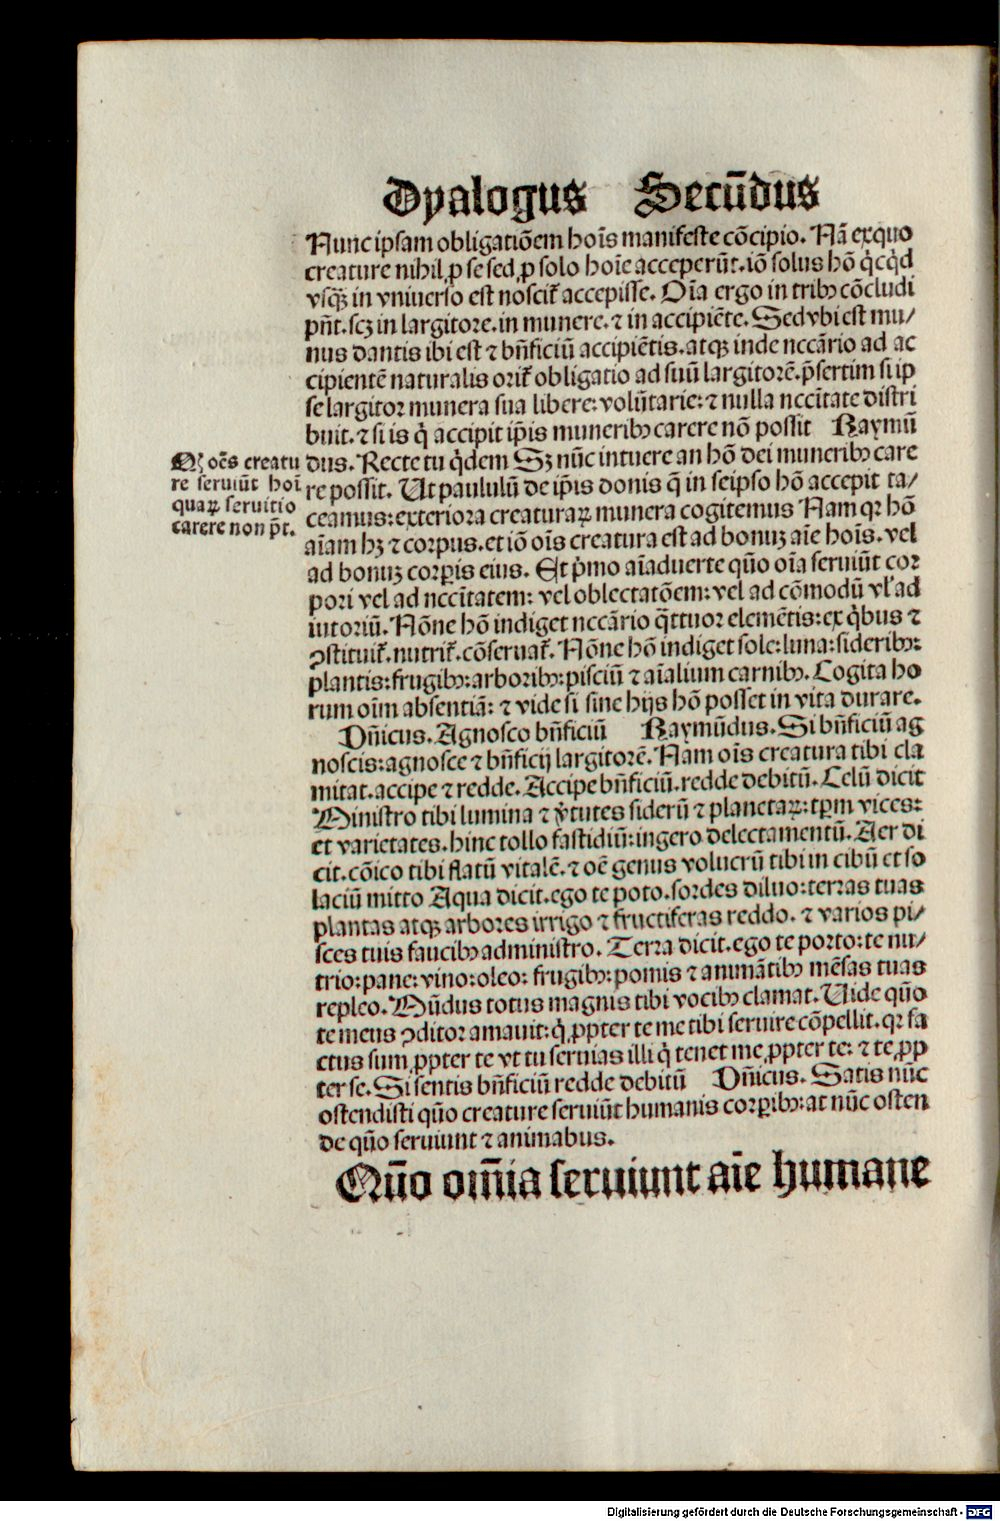 Dyalogus Secūdus
Nunc ipsam obligatiōem hoīs manifeste cōcipio. Nā exquo
creature nihil ꝓ se sed ꝓ solo hoīe acceperūt. iō solus hō q̇cq̇d
vsqȝ in vniuerso est noscit̄ accepisse. Oīa ergo in tribꝰ cōcludi
pn̄t. scȝ in largitore. in munere. ⁊ in accipiēte. Sed vbi est mu/
nus dantis ibi est ⁊ bn̄ficiū accipiētis. atqȝ inde nccārio ad ac
cipientē naturalis orit̄ obligatio ad suū largitorē. p̄sertim si ip
se largitor munera sua libere: volūtarie: ⁊ nulla nccītate distri
buit. ⁊ si is q̇ accipit ip̄is muneribꝰ carere nō possit Raymū
dus. Recte tu q̇dem Sȝ nūc intuere an hō dei muneribꝰ care
re possit. Ut paululū de ip̄is donis q̄ in seipso hō accepit ta/
ceamus: exteriora creaturaꝝ munera cogitemus Nam qꝛ hō
aīam hȝ ⁊ corpus. et iō oīs creatura est ad bonuȝ aīe hoīs. vel
ad bonuȝ corꝑis eius. Et p̄mo aīaduerte quō oīa seruiūt cor
pori vel ad nccītatem: vel oblectatōem: vel ad cōmodū vl' ad
iutoriū. Nōne hō indiget nccārio q̄ttuor elemētis: ex q̇bus ⁊
ꝯstituit̄. nutrit̄. cōseruat̄. Nōne hō indiget sole: luna: sideribꝰ:
plantis: frugibꝰ: arboribꝰ: pisciū ⁊ aīalium carnibꝰ. Cogita ho
rum oīm absentiā: ⁊ vide si sine hijs hō posset in vita durare.
Dn̄icus. Agnosco bn̄ficiū Raymūdus. Si bn̄ficiū ag
noscis: agnosce ⁊ bn̄ficij largitorē. Nam oīs creatura tibi cla
mitat. accipe ⁊ redde. Accipe bn̄ficiū. redde debitū. Celū dicit
Ministro tibi lumina ⁊ v̇tutes siderū ⁊ planetaꝝ: tꝑm vices:
et varietates. hinc tollo fastidiū: ingero delectamentū. Aer di
cit. cōico tibi flatū vitalē. ⁊ oē genus volucrū tibi in cibū et so
laciū mitto Aqua dicit. ego te poto. sordes diluo: terras tuas
plantas atqȝ arbores irrigo ⁊ fructiferas reddo. ⁊ varios pi/
sces tuis faucibꝰ administro. Terra dicit. ego te porto: te nu/
trio: pane: vino: oleo: frugibꝰ: pomis ⁊ animātibꝰ mēsas tuas
repleo. Mūdus totus magnis tibi vocibꝰ clamat. Uide quō
te meus ꝯditor amauit: q̇ ꝓpter te me tibi seruire cōpellit. qꝛ fa
ctus sum ꝓpter te vt tu seruias illi q̇ tenet me ꝓpter te: ⁊ te ꝓp
ter se. Si sentis bn̄ficiū redde debitū Dn̄icus. Satis nūc
ostendisti quō creature seruiūt humanis corꝑibꝰ: at nūc osten
de quō seruiunt ⁊ animabus.
Quō om̄ia seruiunt aīe humane
Qꝫ oēs creatu
re seruiūt hoī
quaꝝ seruitio
carere non p̄t.
Digitalisierung gefördert durch die Deutsche Forschungsgemeinschaft - DFG